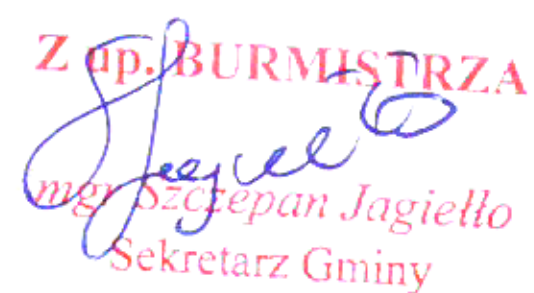 Z up. BURMISTRZA
mgr Szczepan Jagiełło
Sekretarz Gminy